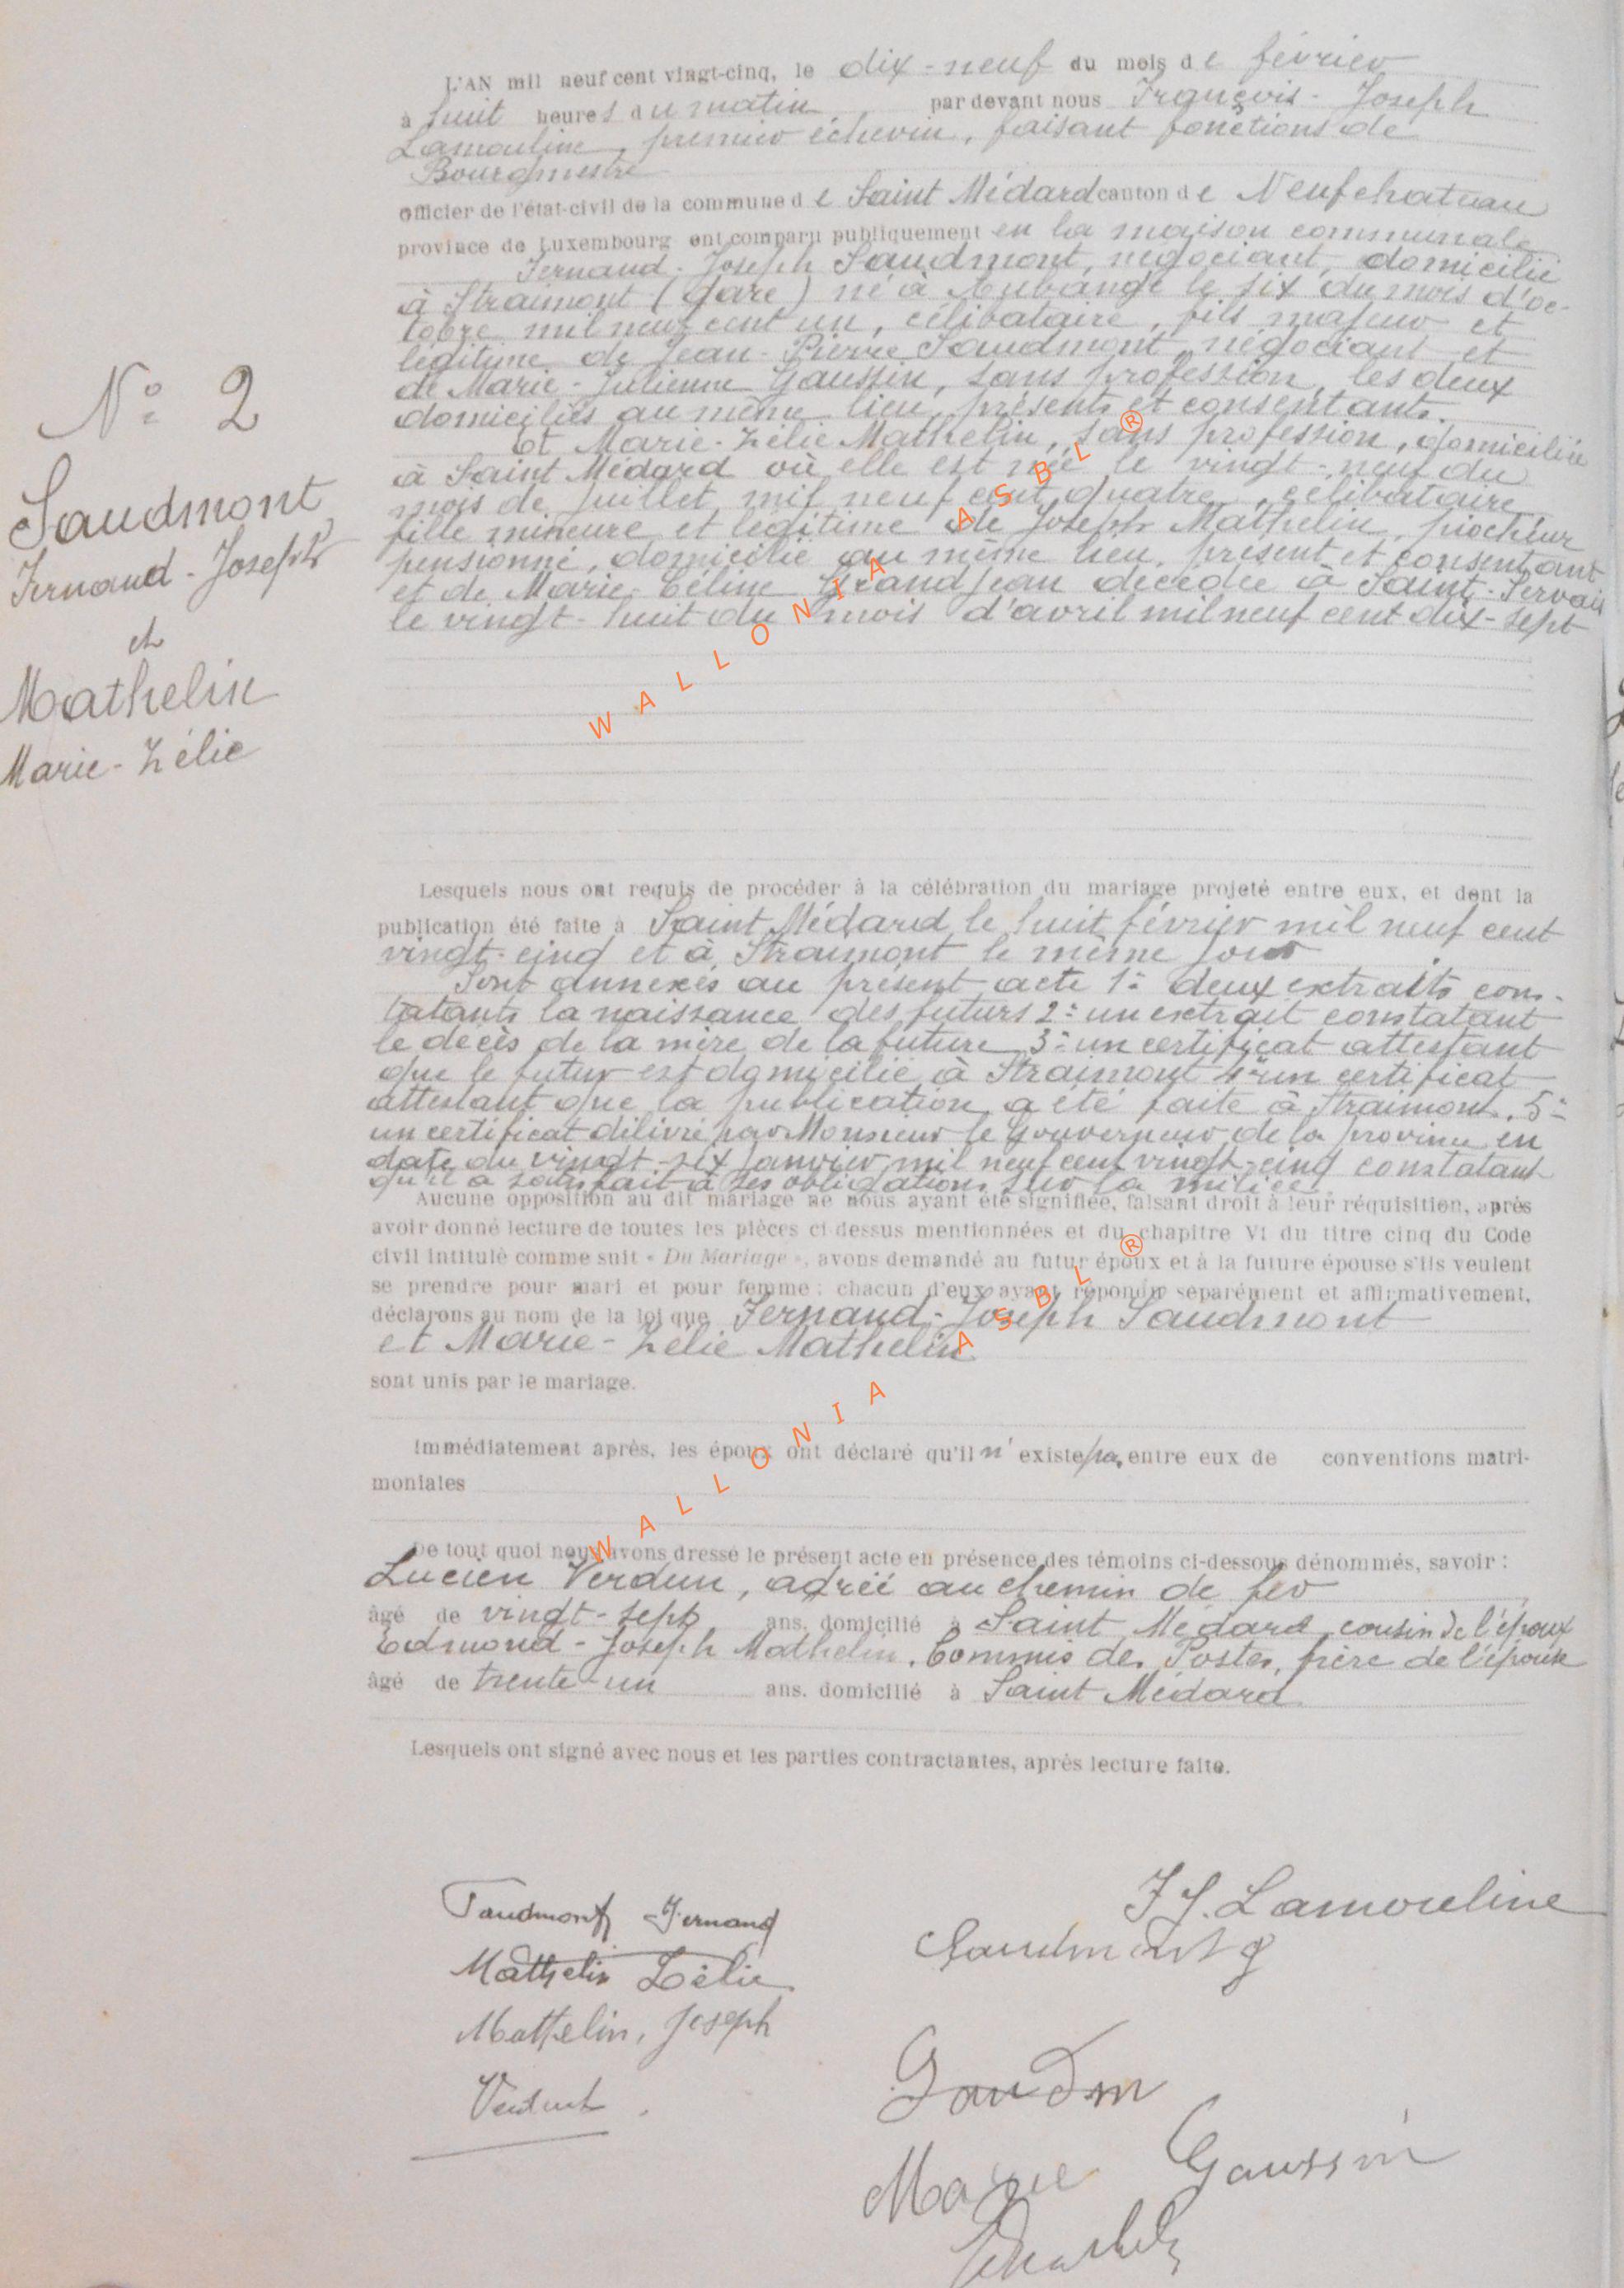 N° 2
Saudmont
Fernand-Joseph
et
Mathelin
Marie-Zélie
L'AN mil neuf cent vingt-cinq, le dix-neuf du mois de février
à huit heures du matin par devant nous François-Joseph
Lamouline, premier échevin, faisant fonctions de
Bourgmestre
officier de l'état-civil de la commune de Saint Médard canton de Neufchateau
province de Luxembourg ont comparu publiquement en la maison communale
Fernand-Joseph Saudmont, négociant, domicilié
à Straimont (gare) né à Aubange le six du mois d'oc-
tobre mil neuf cent un, célibataire, fils majeur et
légitime de Jean-Pierre Saudmont négociant et
de Marie-Julienne Gaussin, sans profession, les deux
domiciliés au même lieu, présents et consentants.
Et Marie-Zélie Mathelin, sans profession, domiciliée
à Saint Médard où elle est née le vingt-neuf du
mois de juillet mil neuf cent quatre, célibataire
fille mineure et légitime de Joseph Mathelin, piocheur
pensionné, domicilié au même lieu, présent et consentant
et de Marie-Céline Grandjean décédée à Saint-Servais
le vingt-huit du mois d'avril mil neuf cent dix-sept
Lesquels nous ont requis de procéder à la célébration du mariage projeté entre eux, et dont la
publication été faite à Saint Médard le huit février mil neuf cent
vingt-cinq et à Straimont le même jour
Sont annexés au présent acte 1° deux extraits cons-
tatants la naissance des futurs 2° un extrait constatant
le décès de la mère de la future 3° un certificat attestant
que le futur est domicilié à Straimont 4° un certificat
attestant que la publication a été faite à Straimont. 5°
un certificat délivré par Monsieur le Gouverneur de la province en
date du vingt-six janvier mil neuf cent vingt-cinq constatant
qu'il a satisfait à ses obligations sur la milice.
Aucune opposition au dit mariage ne nous ayant été signifiée, faisant droit à leur réquisition, après
avoir donné lecture de toutes les pièces ci dessus mentionnées et du chapitre VI du titre cinq du Code
civil intitulé comme suit « Du Mariage », avons demandé au futur époux et à la future épouse s'ils veulent
se prendre pour mari et pour femme : chacun d'eux ayant répondu séparément et affirmativement,
déclarons au nom de la loi que Fernand-Joseph Saudmont
et Marie-Zélie Mathelin
sont unis par le mariage.
Immédiatement après, les époux ont déclaré qu'il n'existe pas entre eux de conventions matri-
moniales
De tout quoi nous avons dressé le présent acte en présence des témoins ci-dessous dénommés, savoir :
Lucien Verdun, agréé au chemin de fer
âgé de vingt-sept ans, domicilié à Saint Médard, cousin de l'époux
Edmond-Joseph Mathelin, Commis des Postes, frère de l'épouse
âgé de trente-un ans, domicilié à Saint Médard
Lesquels ont signé avec nous et les parties contractantes, après lecture faite.
F J. Lamouline
Saudmont Fernand
Saudmont J
Mathelin Zélie
Mathelin, Joseph
Verdun
Marie Gaussin
WALLONIA ASBL ®
WALLONIA ASBL ®